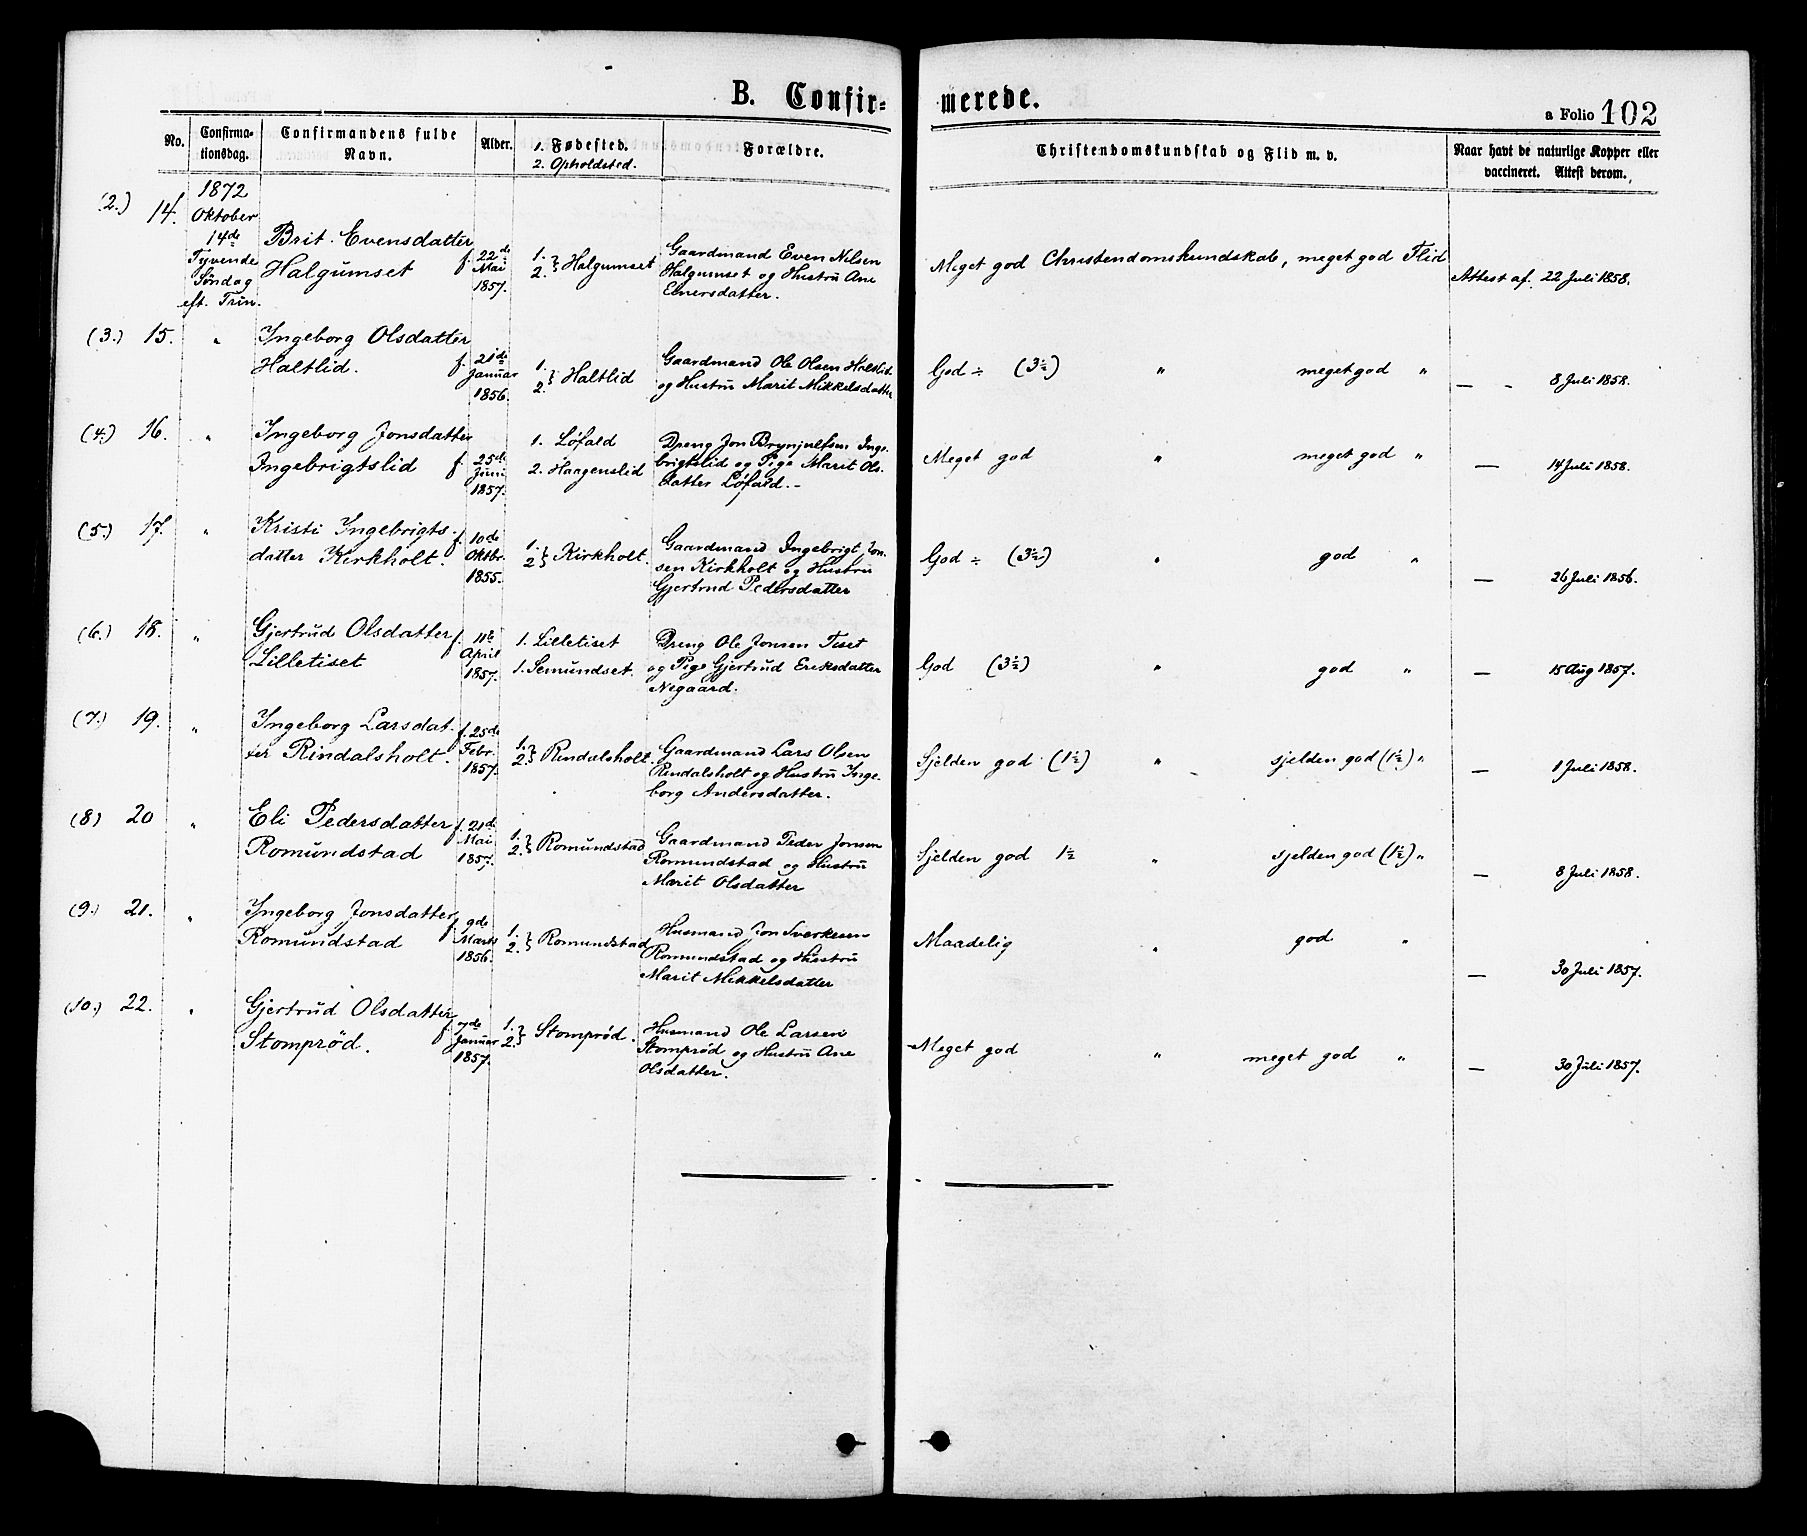 B. Confir-
merede.
a Folio 102
No.
Confirma-
tionsdag.
Confirmandens fulde
Navn.
Alder.
1. Fødested.
2. Opholdsted.
Forældre.
Christendomskundskab og Flid m. v.
Naar havt de naturlige Kopper eller
vaccineret. Attest derom.
(2.) 14.
1872
Oktober
14de
Tyvende
Søndag
eft. Trin.
Brit Evensdatter
Halgumset
f. 22de
Mai
1857.
1.
2. } Halgumset
Gaardmand Even Nilsen
Halgumset og Hustru Ane
Einersdatter.
Meget god Christendomskundskab, meget god Flid
Attest af. 22 Juli 1858.
(3.) 15. "
Ingeborg Olsdatter
Haltlid.
f. 21de
Januar
1856.
1.
2. } Haltlid
Gaardmand Ole Olsen Haltlid
og Hustru Marit Mikkelsdatter
God ÷ (3½) " meget god "
— - 8 Juli 1858.
(4.) 16. "
Ingeborg Jonsdatter
Ingebrigtslid
f. 25de
Juni
1857.
1. Løfald
2. Haagenslid
Dreng Jon Brynjulfsen Inge-
brigtslid og Pige Marit Ols-
datter Løfald.-
Meget god " meget god "
— 14 Juli 1858.
(5.) 17. "
Kristi Ingebrigts-
datter Kirkholt.
f. 10de
Oktbr.
1855.
1.
2 } Kirkholt.
Gaardmand Ingebrigt Jon-
sen Kirkholt og Hustru
Gjertrud Pedersdatter
God ÷ (3½) " god "
— 26 Juli 1856.
(6.) 18. "
Gjertrud Olsdatter
Lilletiset
f. 11te
April
1857.
1. Lilletiset
1. Semundset.
Dreng Ole Jonsen Tiset
og Pige Gjertrud Eriksdatter
Negaard.
God (3½) " god "
— 15 Aug 1857.
(7.) 19. "
Ingeborg Larsdat-
ter Rindalsholt.
f. 25de
Febr.
1857.
1.
2. } Rindalsholt.
Gaardmand Lars Olsen
Rindalsholt og Hustru Inge-
borg Andersdatter.
Sjelden god (1½) " sjelden god (1½) "
— 1 Juli 1858.
(8) 20 "
Eli Pedersdatter
Romundstad
f. 21de
Mai
1857.
1.
2. } Romundstad
Gaardmand Peder Jonsen
Romundstad og Hustru
Marit Olsdatter
Sjelden god 1½ " sjelden god (1½) "
— 8 Juli 1858.
(9.) 21. "
Ingeborg Jonsdatter
Romundstad
f. 9de
Marts
1856.
1.
2. } Romundstad
Husmand Jon Sverkesen
Romundstad og Hustru
Marit Mikkelsdatter
Maadelig " god "
— 30 Juli 1857.
(10.) 22. "
Gjertrud Olsdatter
Stomprød.
f. 7de
Januar
1857.
1.
2. } Stomprød.
Husmand Ole Larsen
Stomprød og Hustru Ane
Olsdatter.
Meget god " meget god "
— 30 Juli 1857.